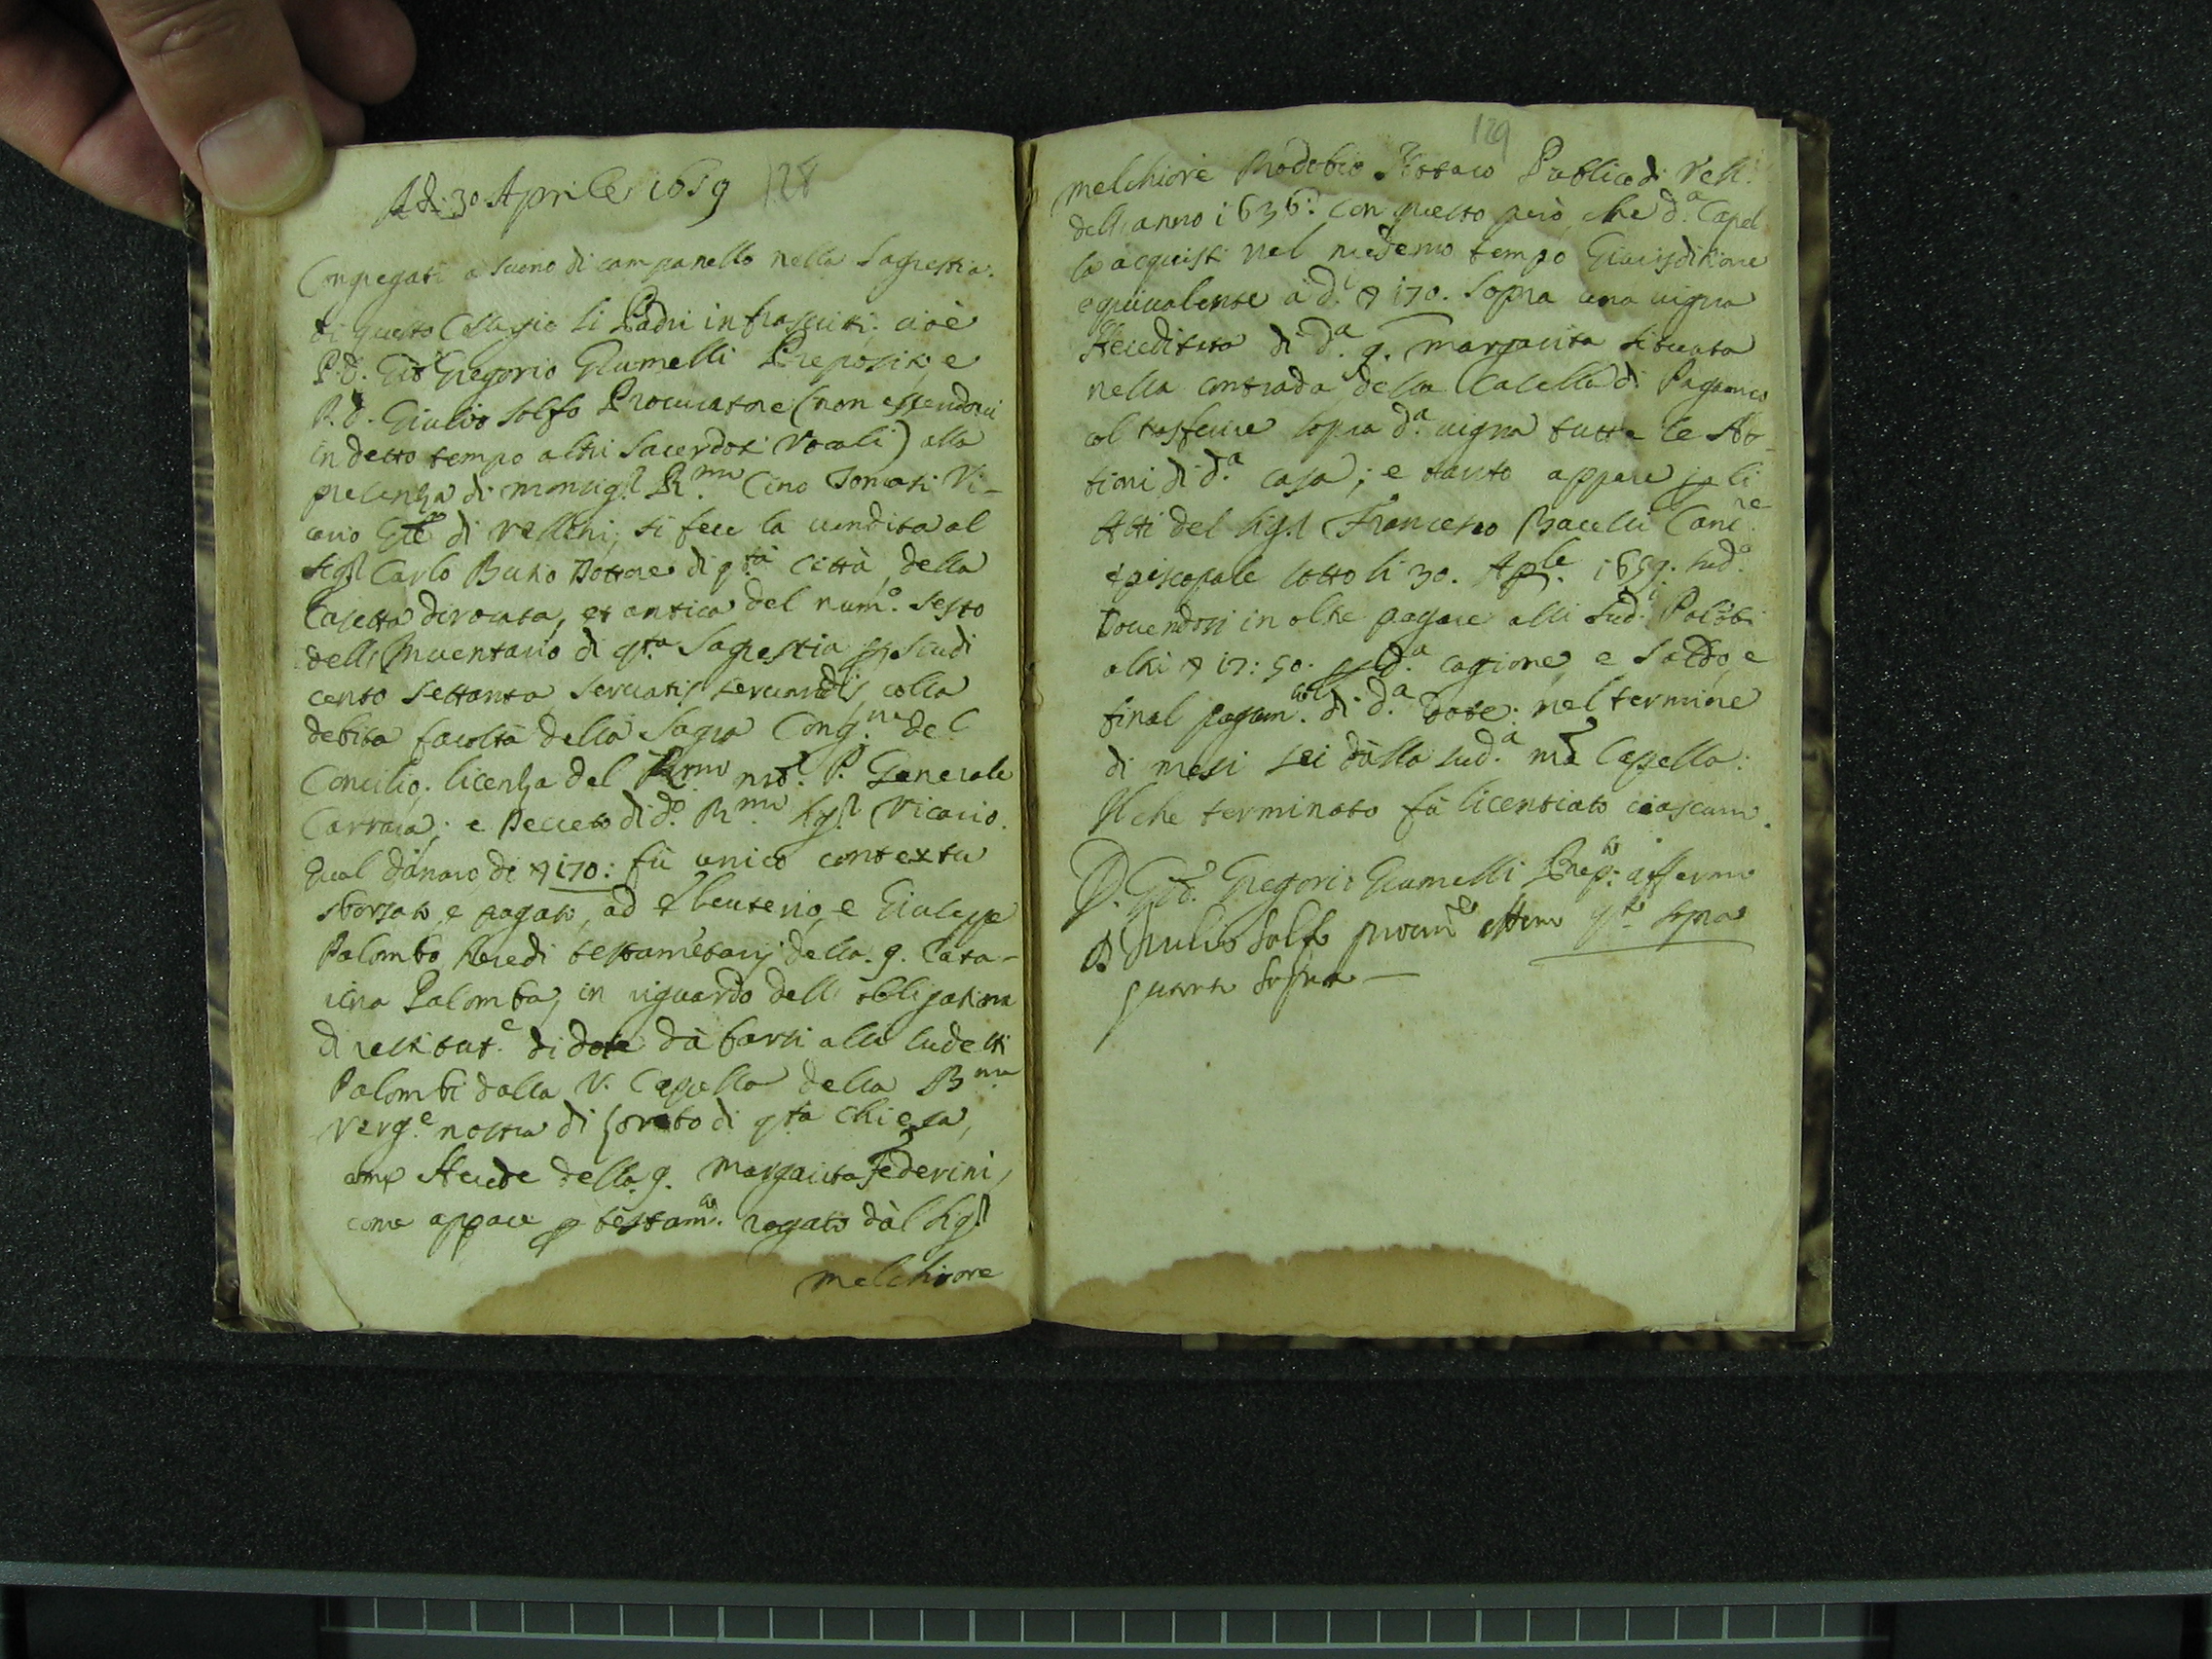 Adi 30 Aprile 1659 128
Congregati a suono di campanello nella Sagrestia
di questo Collegio li Padri infrascritti; cioè
P. D. Gio Gregorio Grumelli Preposito, e
P. D. Giulio Solfo Procuratore (non essendoci
in detto tempo altri Sacerdoti Vocali) alla
presenza di monsig.r R.mo Cino Vi-
cario Gñle di Velletri, si fece la vendita al
sig.r Carlo Dottore di q.ta Città, della
Casetta diroccata, et antica del num.o sesto
dell'Inventario di q.ta Sagrestia p scudi
cento settanta, servatis servandis, colla
debita facoltà della Sagra Cong.ne del
Concilio; licenza del R.mo nro P. Generale
Carrara; e Decreto di d.o R.mo Sig.r Vicario.
Qual danaro di 170: fù unico contextu
sborsato, e pagato, ad Eleuterio, e Giuseppe
Palombo heredi testametarij della q. Cata-
rina Palomba, in riguardo dell'obligatione
di restitut.e di dote dà farsi alli sudetti
Palombi dalla V. Cappella della B.ma
Verg.e nostra di Loreto di q.ta Chiesa,
come Herede della q. Margarita Federini,
come appare p testam.to rogato dàl Sig.r
Melchiore
129
Melchiore Notaro Publico di Vell.
dell'anno 1636: Con questo però, che d.a Capel
la acquisti nel medemo tempo Giurisditione
equivalente à d.i 170. sopra una vigna
Hereditata di d.a q. Margarita situata
nella contrada della Casella di
col trasferire sopra d.a vigna tutte le
tioni di d.a casa; e tanto appare p li
Atti del Sig.r Francesco Canc.re
Episcopale sotto li 30. Aple. 1659. sud.o
Dovendosi in oltre pagare alli sud.i Palobi
altri 17:50. p d.a cagione, e Saldo, e
final pagam.to di d.a Dote: nel termine
di mesi sei dàlla sud.a mã Capella:
Il che terminato fù licentiato ciascuno.
D. Gio. Gregorio Grumelli Prep.to affermo
D. Giulio Solfo procur.re affermo q.to sopra
quanto sopra